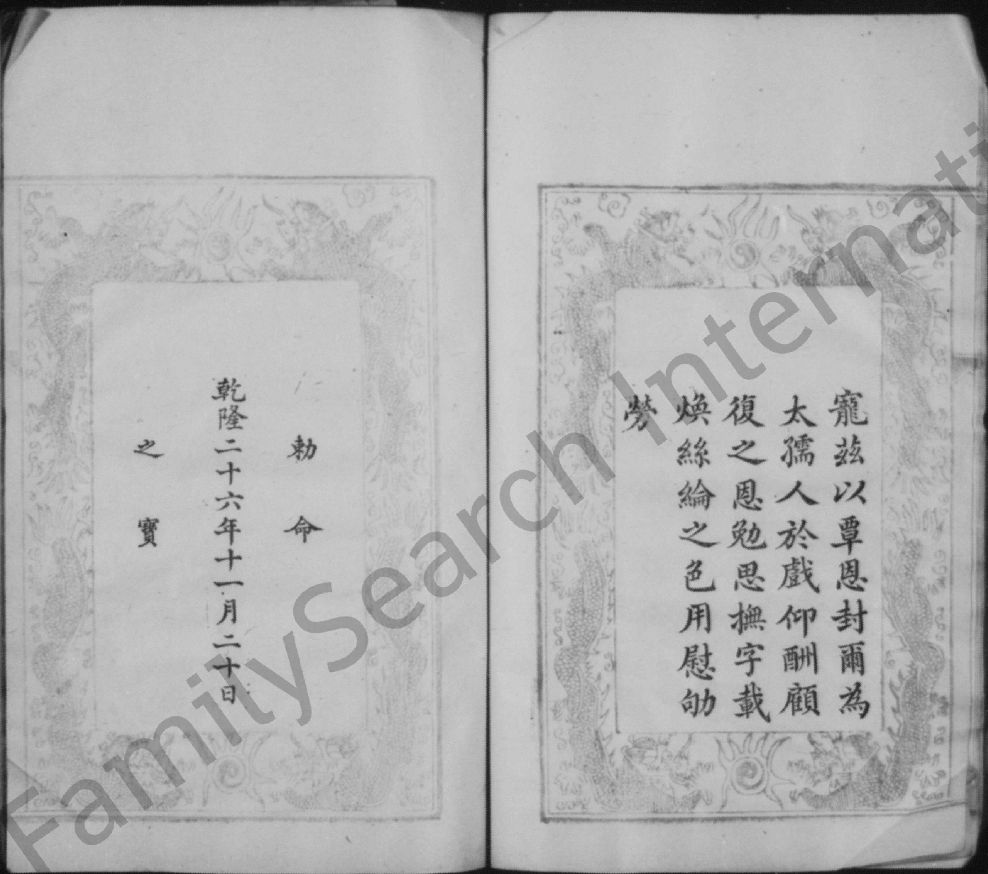 寵茲以覃恩封爾為
太孺人於戲仰酬顧
復之恩勉思撫字載
煥絲綸之色用慰劬
勞
勅命
乾隆二十六年十一月二十日
之寶
FamilySearch International